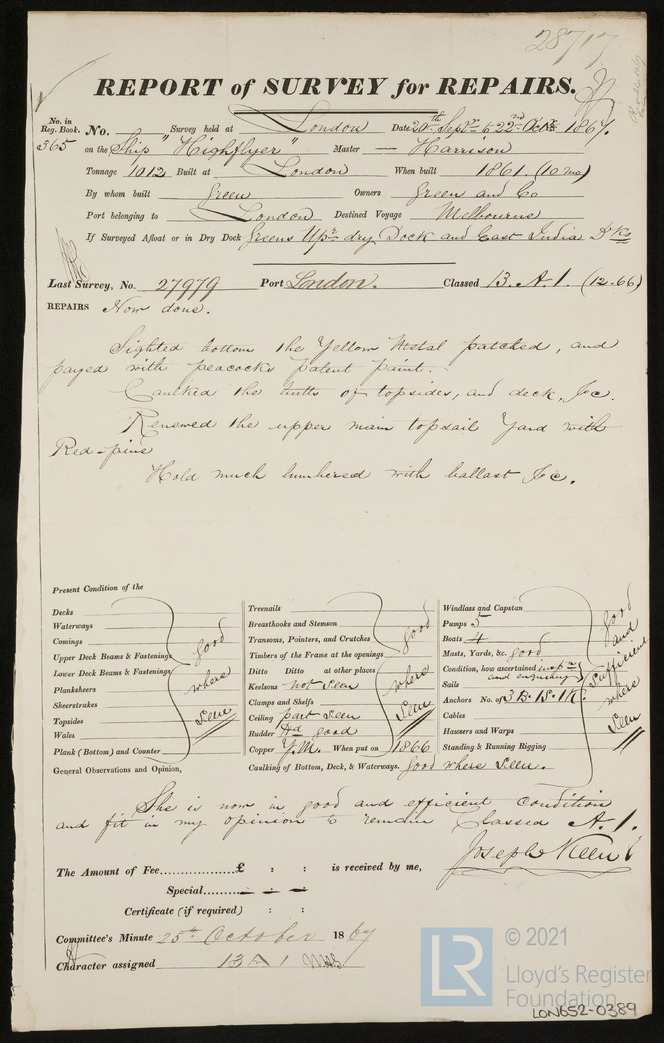 28717
REPORT of SURVEY for REPAIRS.
No. in Reg. Book. No. Survey held at London Date 20th Septr to 22nd Octr 1867.
365 on the Ship "Highflyer" Master — Harrison
Tonnage 1012 Built at London When built 1861. (10 mo)
By whom built Green Owners Green and Co
Port belonging to London Destined Voyage Melbourne
If Surveyed Afloat or in Dry Dock Greens Upr dry Dock and East India Dks
Last Survey, No. 27979 Port London. Classed 13. A. 1. (12.66)
REPAIRS Now done.
Sighted bottom the Yellow Metal patched, and
payed with peacocks patent paint.
Caulked the butts of topsides, and deck, &c.
Renewed the upper main topsail Yard with
Red-pine
Hold much lumbered with ballast &c.
Present Condition of the
Decks
Waterways
Comings
Upper Deck Beams & Fastenings
Lower Deck Beams & Fastenings
Planksheers
Sheerstrakes
Topsides
Wales
Plank (Bottom) and Counter
good
where
seen
General Observations and Opinion,
Treenails
Breasthooks and Stemson
Transoms, Pointers, and Crutches
Timbers of the Frame at the openings
Ditto Ditto at other places
Keelsons not seen
Clamps and Shelfs
Ceiling part seen
Rudder Hd good
Copper Y.M. When put on 1866
good
where
seen
Caulking of Bottom, Deck, & Waterways. good where seen.
Windlass and Capstan
Pumps 5
Boats 4
Masts, Yards, &c. good
Condition, how ascertained inspn
and enquiring
Sails
Anchors No. of 3 B. 1 S. 1 K.
Cables
Hawsers and Warps
Standing & Running Rigging
good
and
sufficient
where
seen
She is now in good and efficient condition
and fit in my opinion to remain Classed A. 1.
Joseph Keen
The Amount of Fee..................£ : : is received by me,
Special.........
Certificate (if required) : :
Committee's Minute 25th October 1867
Character assigned 13 A 1
LR
© 2021
Lloyd's Register
Foundation
LON652-0389